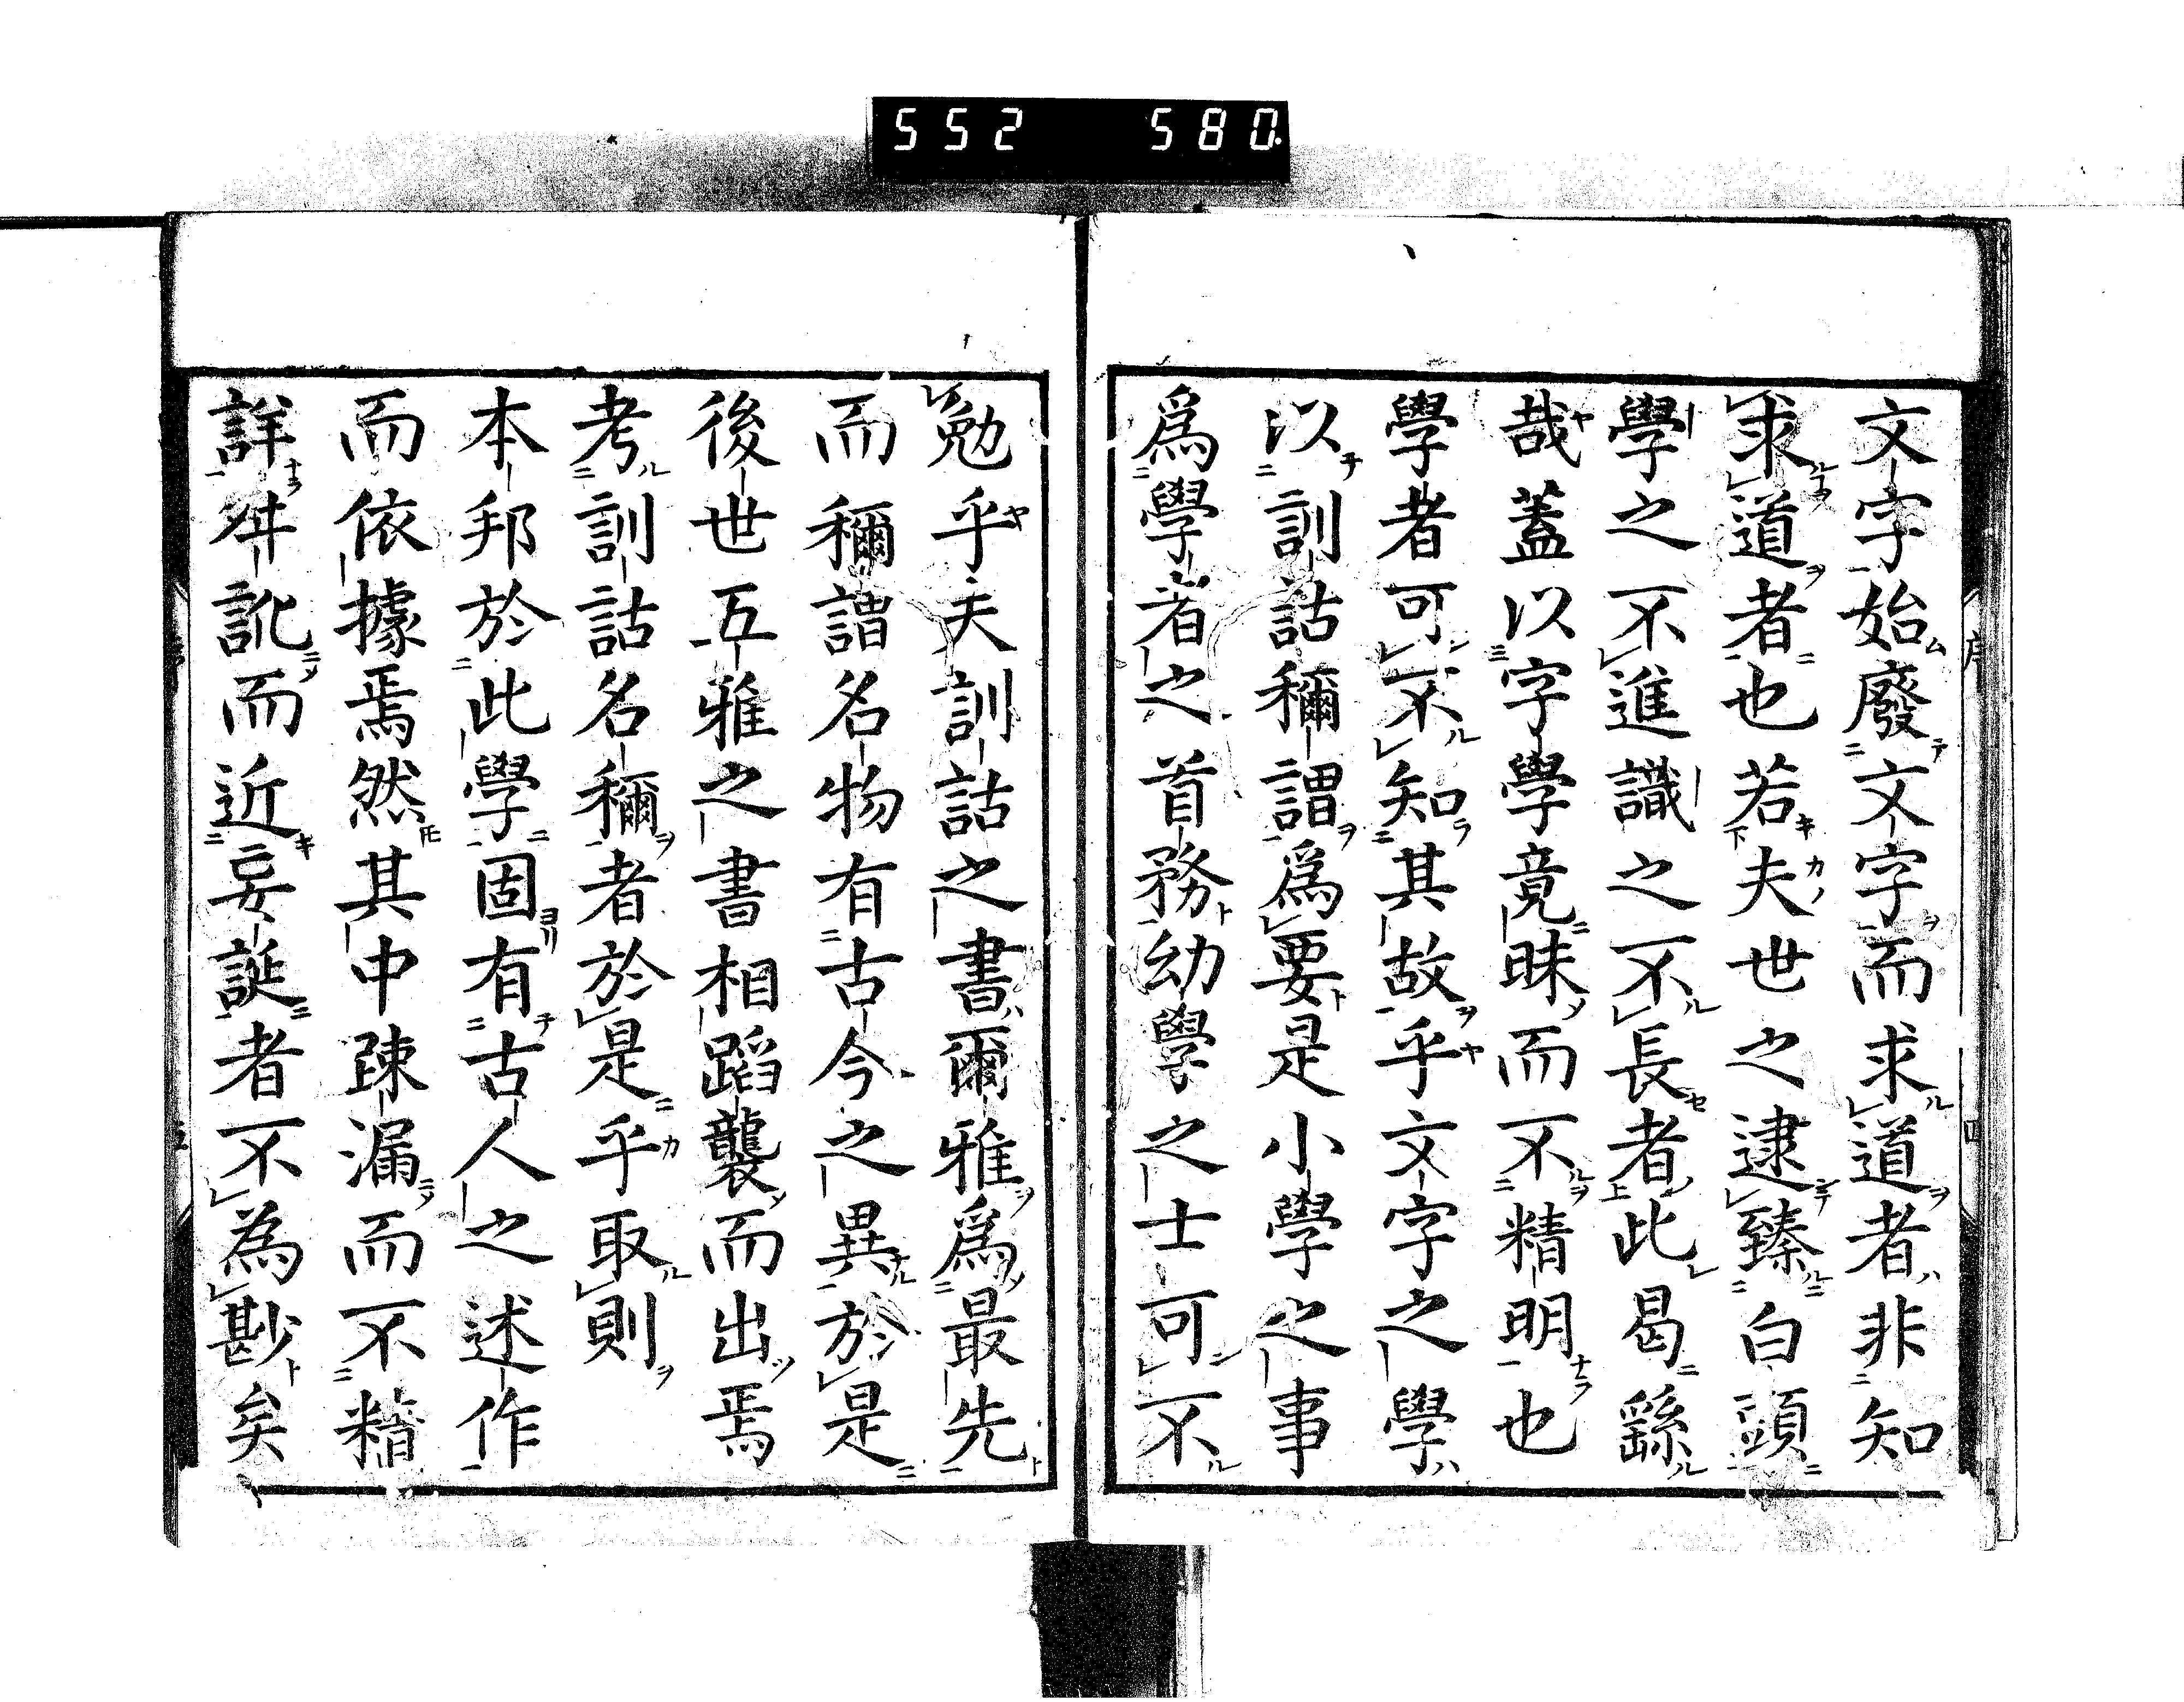 552 580
文字始廢文字而求道者非知
求道者也若夫世之逮臻白頭
學之不進識之不長者此曷繇
哉蓋以字學竟昧而不精明也
學者可不知其故乎文字之學
以訓詁稱謂爲要是小學之事
爲學者之首務幼學之士可不
勉乎夫訓詁之書爾雅爲最先
而稱謂名物有古今之異於是
後世五雅之書相蹈襲而出焉
考訓詁名稱者於是乎取則
本邦於此學固有古人之述作
而依據焉然其中疎漏而不精
詳舛訛而近妄誕者不為尠矣